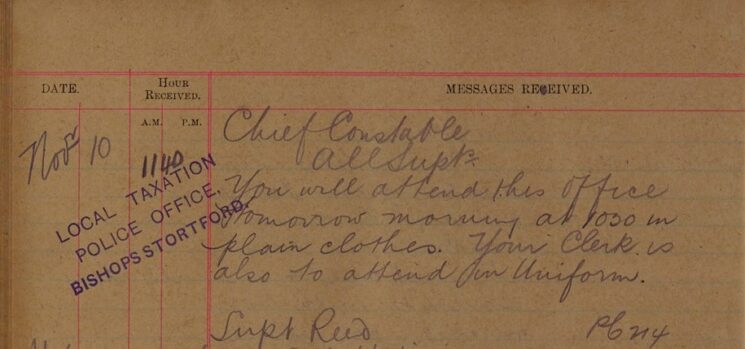 DATE.
HOUR RECEIVED.
MESSAGES RECEIVED.
A.M. P.M.
Novr 10
1140
LOCAL TAXATION
POLICE OFFICE,
BISHOPS STORTFORD.
Chief Constable
All Supts.
You will attend this office
tomorrow morning at 1030 in
plain clothes. Your Clerk is
also to attend in Uniform.
Supt Reed